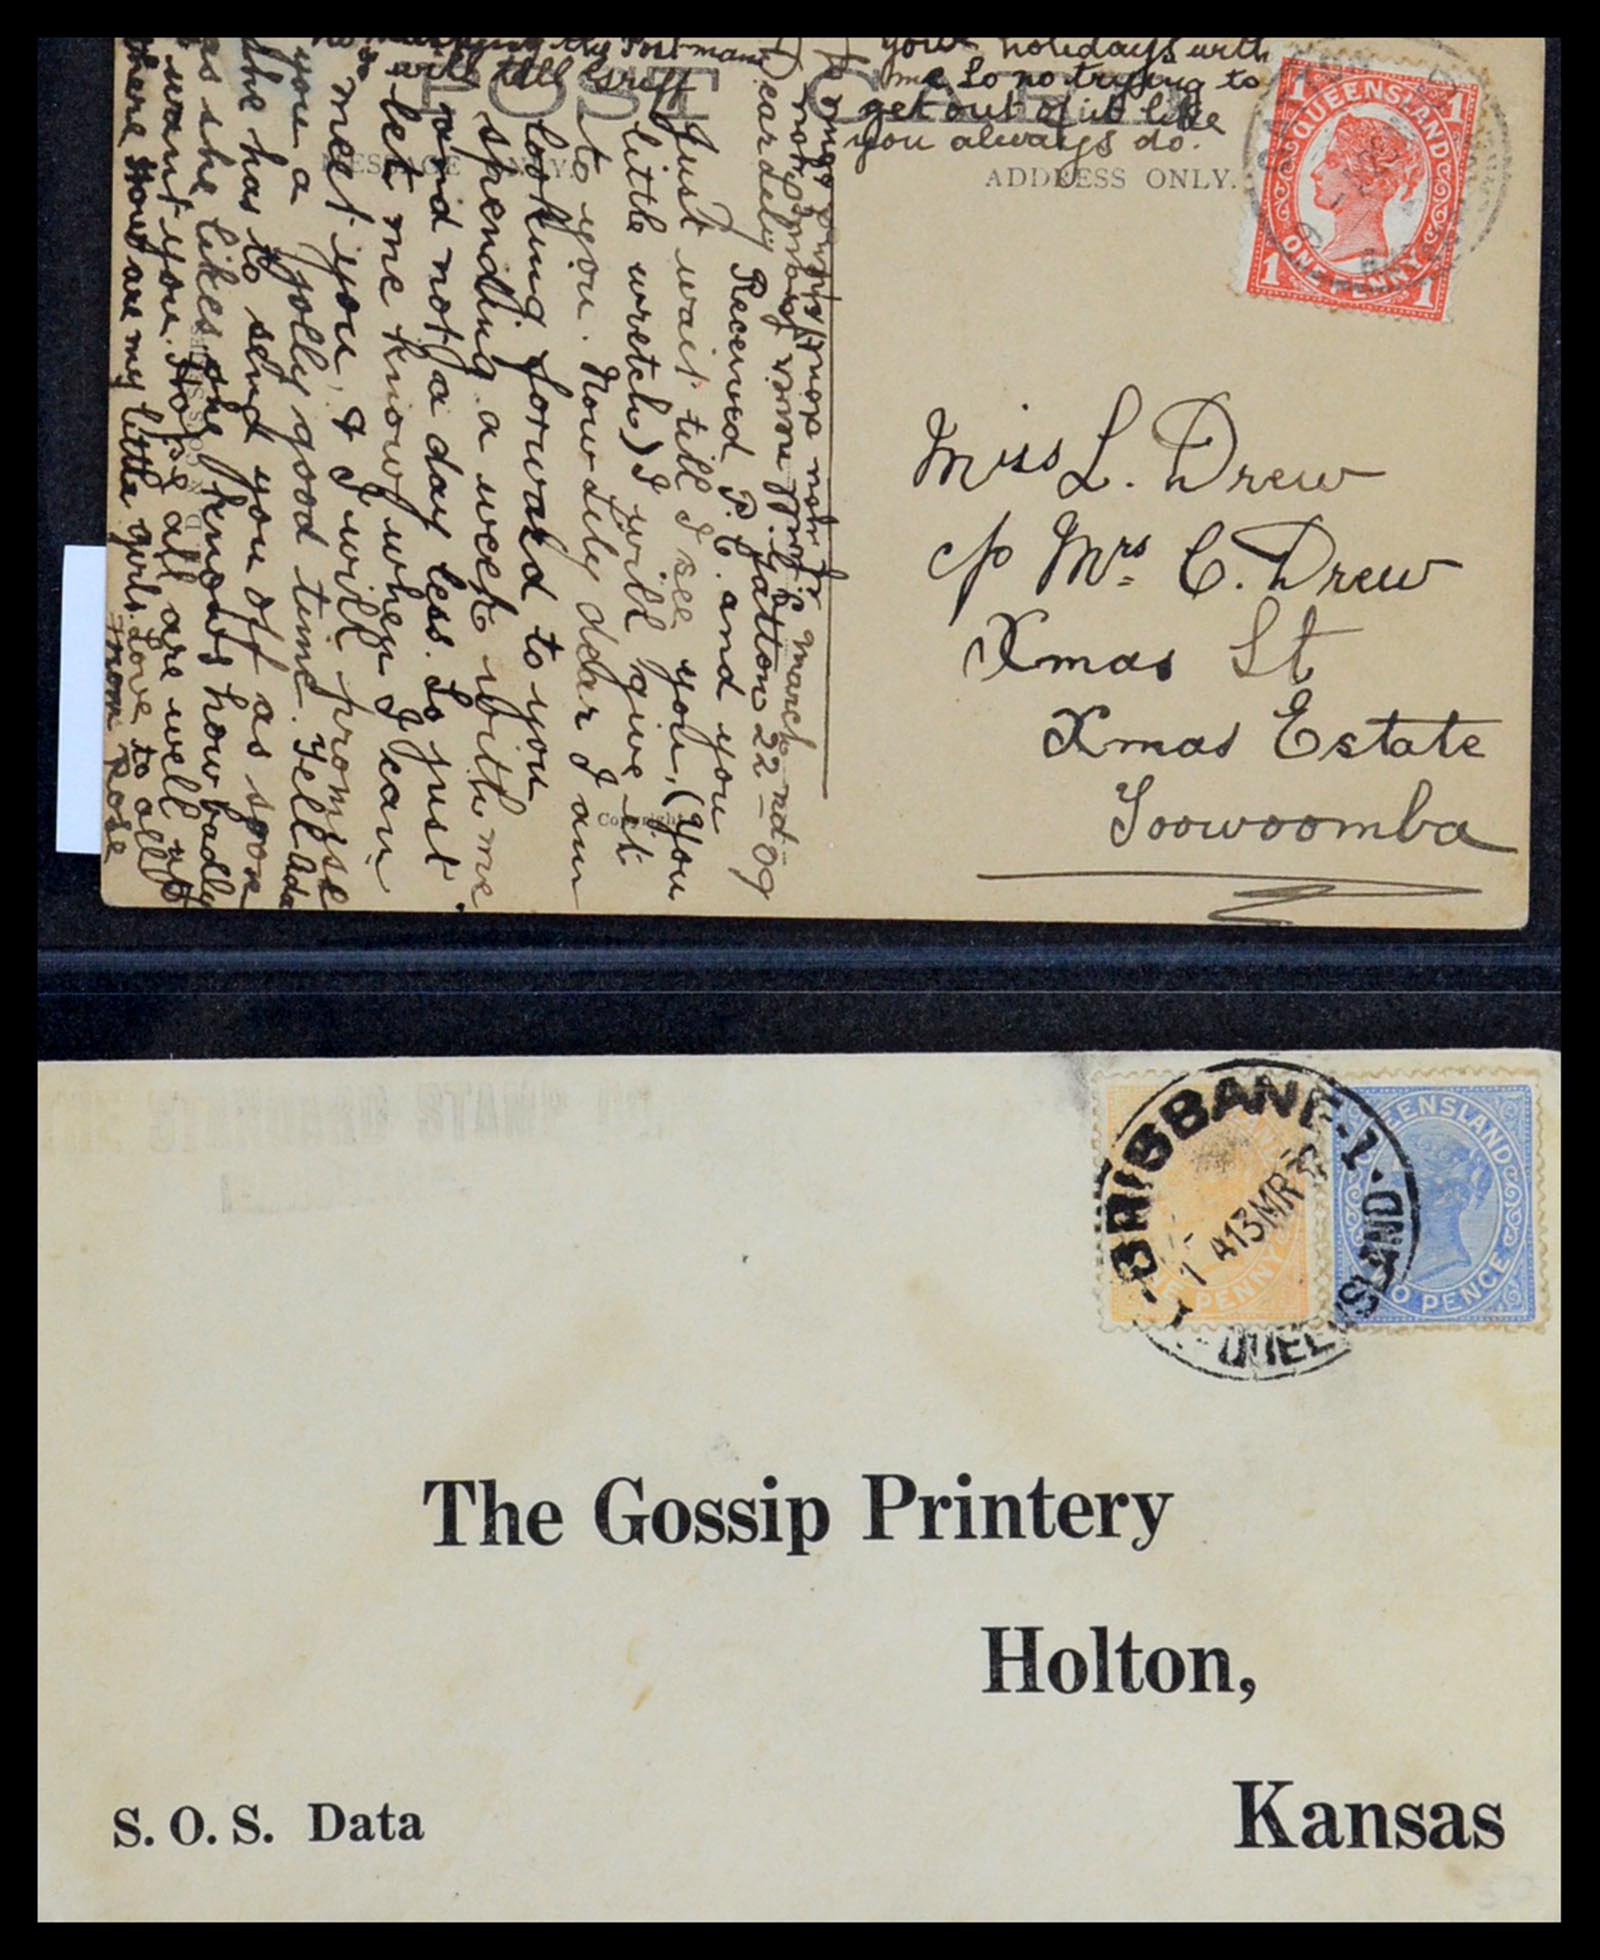 no
the Postman
will tell
POST CARD
your holidays with
me So no trying to
get out of it like
you always do.
ADDRESS ONLY.
1 QUEENSLAND 1
1 ONE PENNY 1
Gatton 22nd
March 09
Dear Lily Received P.C. and you
Just wait till I see you, (you
little wretch) I will give it
to you. Now Lily dear I am
looking forward to you
spending a week with me
and not a day less. So just
let me know when I can
meet you, & I will promise
you a jolly good time. Tell Ada
she has to send you off as soon
as she likes she knows how badly
I want you. Hope all are well up
there How are my little girls. Love to all
from Rose
Copyright
Miss L. Drew
c/o Mrs C. Drew
Xmas St
Xmas Estate
Toowoomba
BRISBANE.1.
1 A13MR
QUEENSLAND
PENNY
QUEENSLAND
TWO PENCE
The Gossip Printery
Holton,
Kansas
S. O. S. Data